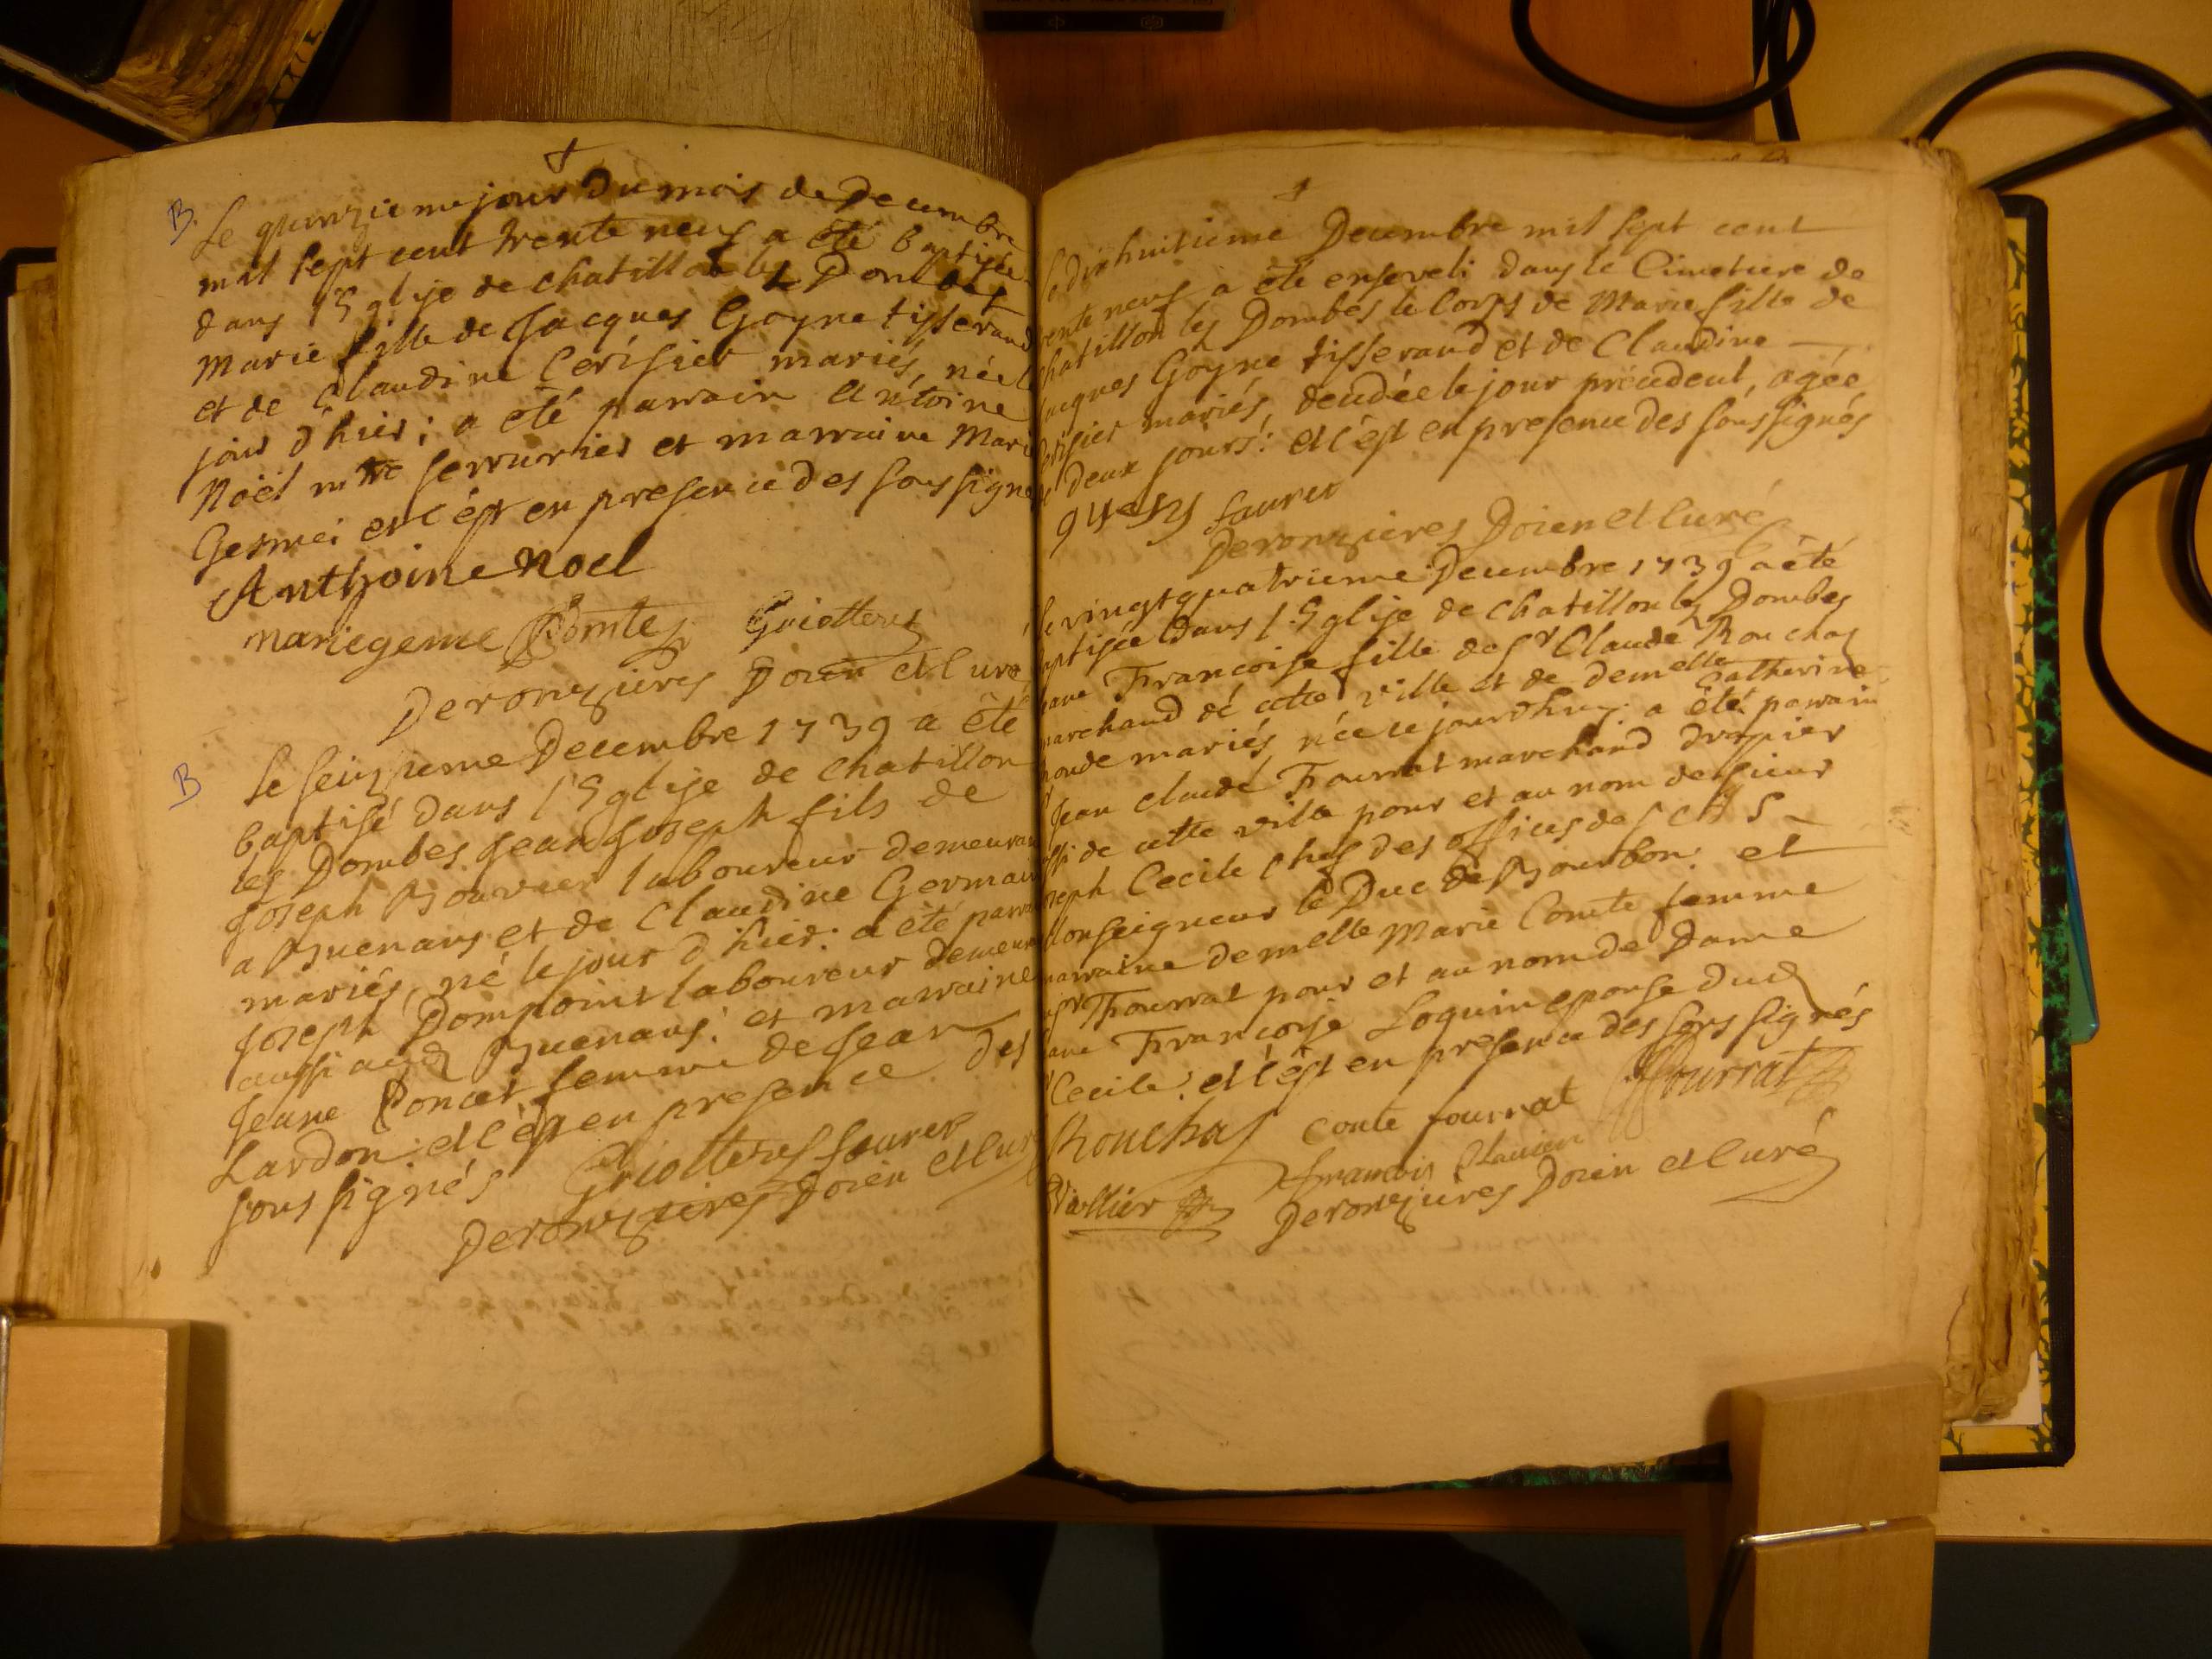 B.
Le quinzieme jour du mois de Decembre
mil sept cent trente neuf a été baptisée
dans l'Eglise de chatillon les Dombes
Marie fille de Jacques Goyne tisserand
et de Claudine Cerisier mariés, née le
jour d'hier; a été parrain Antoine
Noël mtre serrurier et marraine Marie
Germei et c'ést en presence des soussignés
Anthoine noel
mariegeme Comte Griottereÿ
Deronzieres Doien et Curé
B
le seizieme Decembre 1739 a été
baptisé dans l'Eglise de chatillon
les Dombes Jean Joseph fils de
Joseph Bouvier laboureur demeurant
a Buenans et de Claudine Germain
mariés, né le jour d'hier: a été parrain
Joseph Dompoint laboureur demeurant
aussi aud Buenans: et marraine
Jeane Poncet femme de Jean
Lardon: et c'ést en presence des
sous signés Griottereÿ faurer
Deronzieres Doien et Curé
Le dix huitieme Decembre mil sept cent
trente neuf a été enseveli dans le Cimetiere de
chatillon les Dombes le Corps de Marie fille de
Jacques Goyne tisserand et de Claudine
Cerisier mariés, decedée le jour precedent, agée
de deux jours: et c'ést en presence des soussignés
faurer
Deronzieres Doien et Curé
le vingtquatrieme Decembre 1739 a été
baptisée dans l'Eglise de chatillon les Dombes
Jeane Francoise fille de sr Claude Rouchas
marchand de cette ville et de demelle Catherine
mariés née ce jourdhuy: a été parrain
sr Jean claude Fourrat marchand drapier
aussi de cette ville pour et au nom de sieur
Joseph Cecile chef des offices de S A S
Monseigneur le Duc de Bourbon: et
marraine demelle Marie Comte femme
Fourrat pour et au nom de Dame
Jeane Francoise Loquin epouse dud
sr Cecile: et c'ést en presence des sous signés
Rouchas Conte fourrat Fourrat
francois
Viallier Deronzieres Doien et Curé